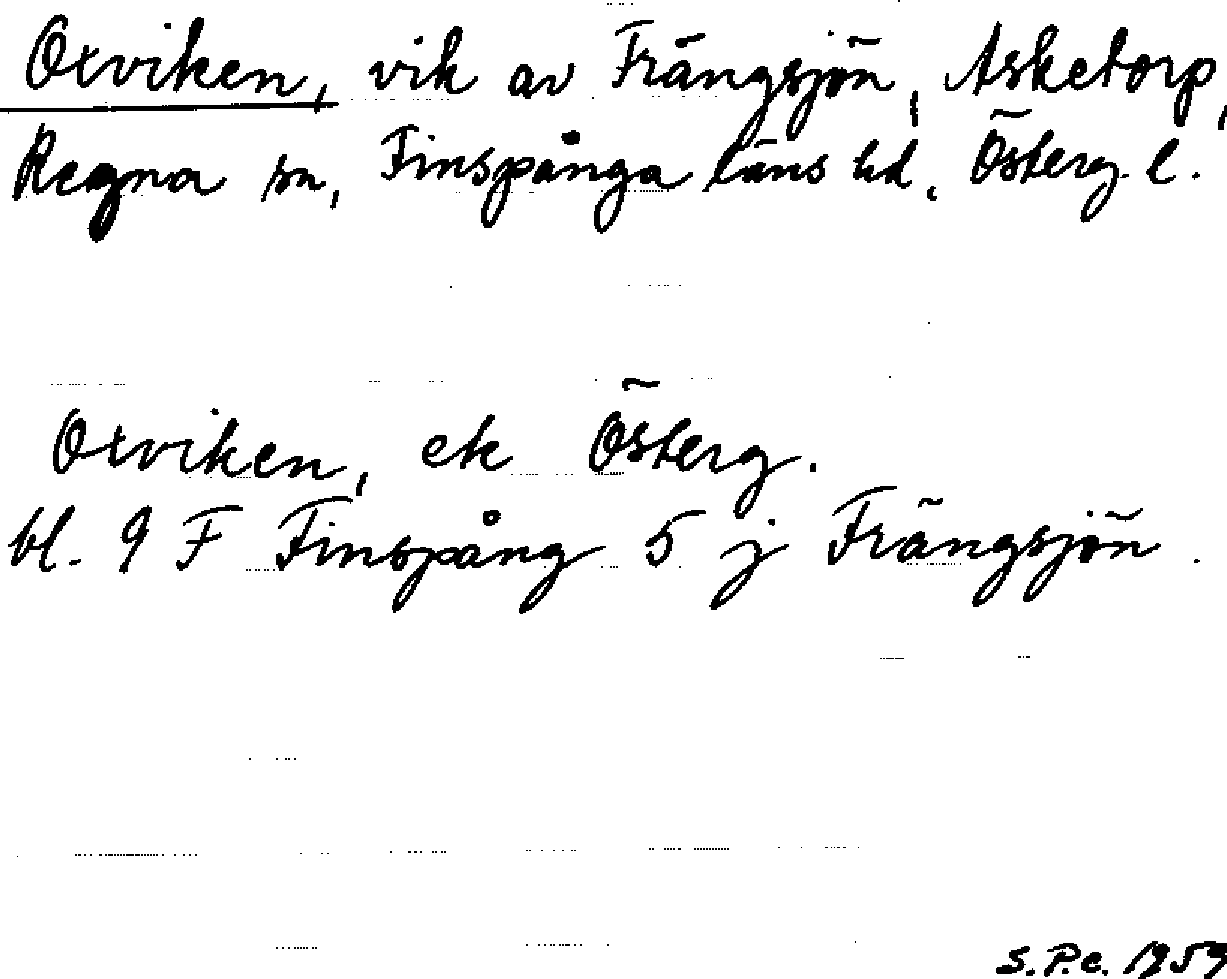 Oxviken, vik av Frängsjön, Asketorp,
Regna sn, Finspånga läns hd, Österg. l.
Oxviken, ek Österg.
bl. 9 F Finspång 5 j Frängsjön.
S.P.c. 1959